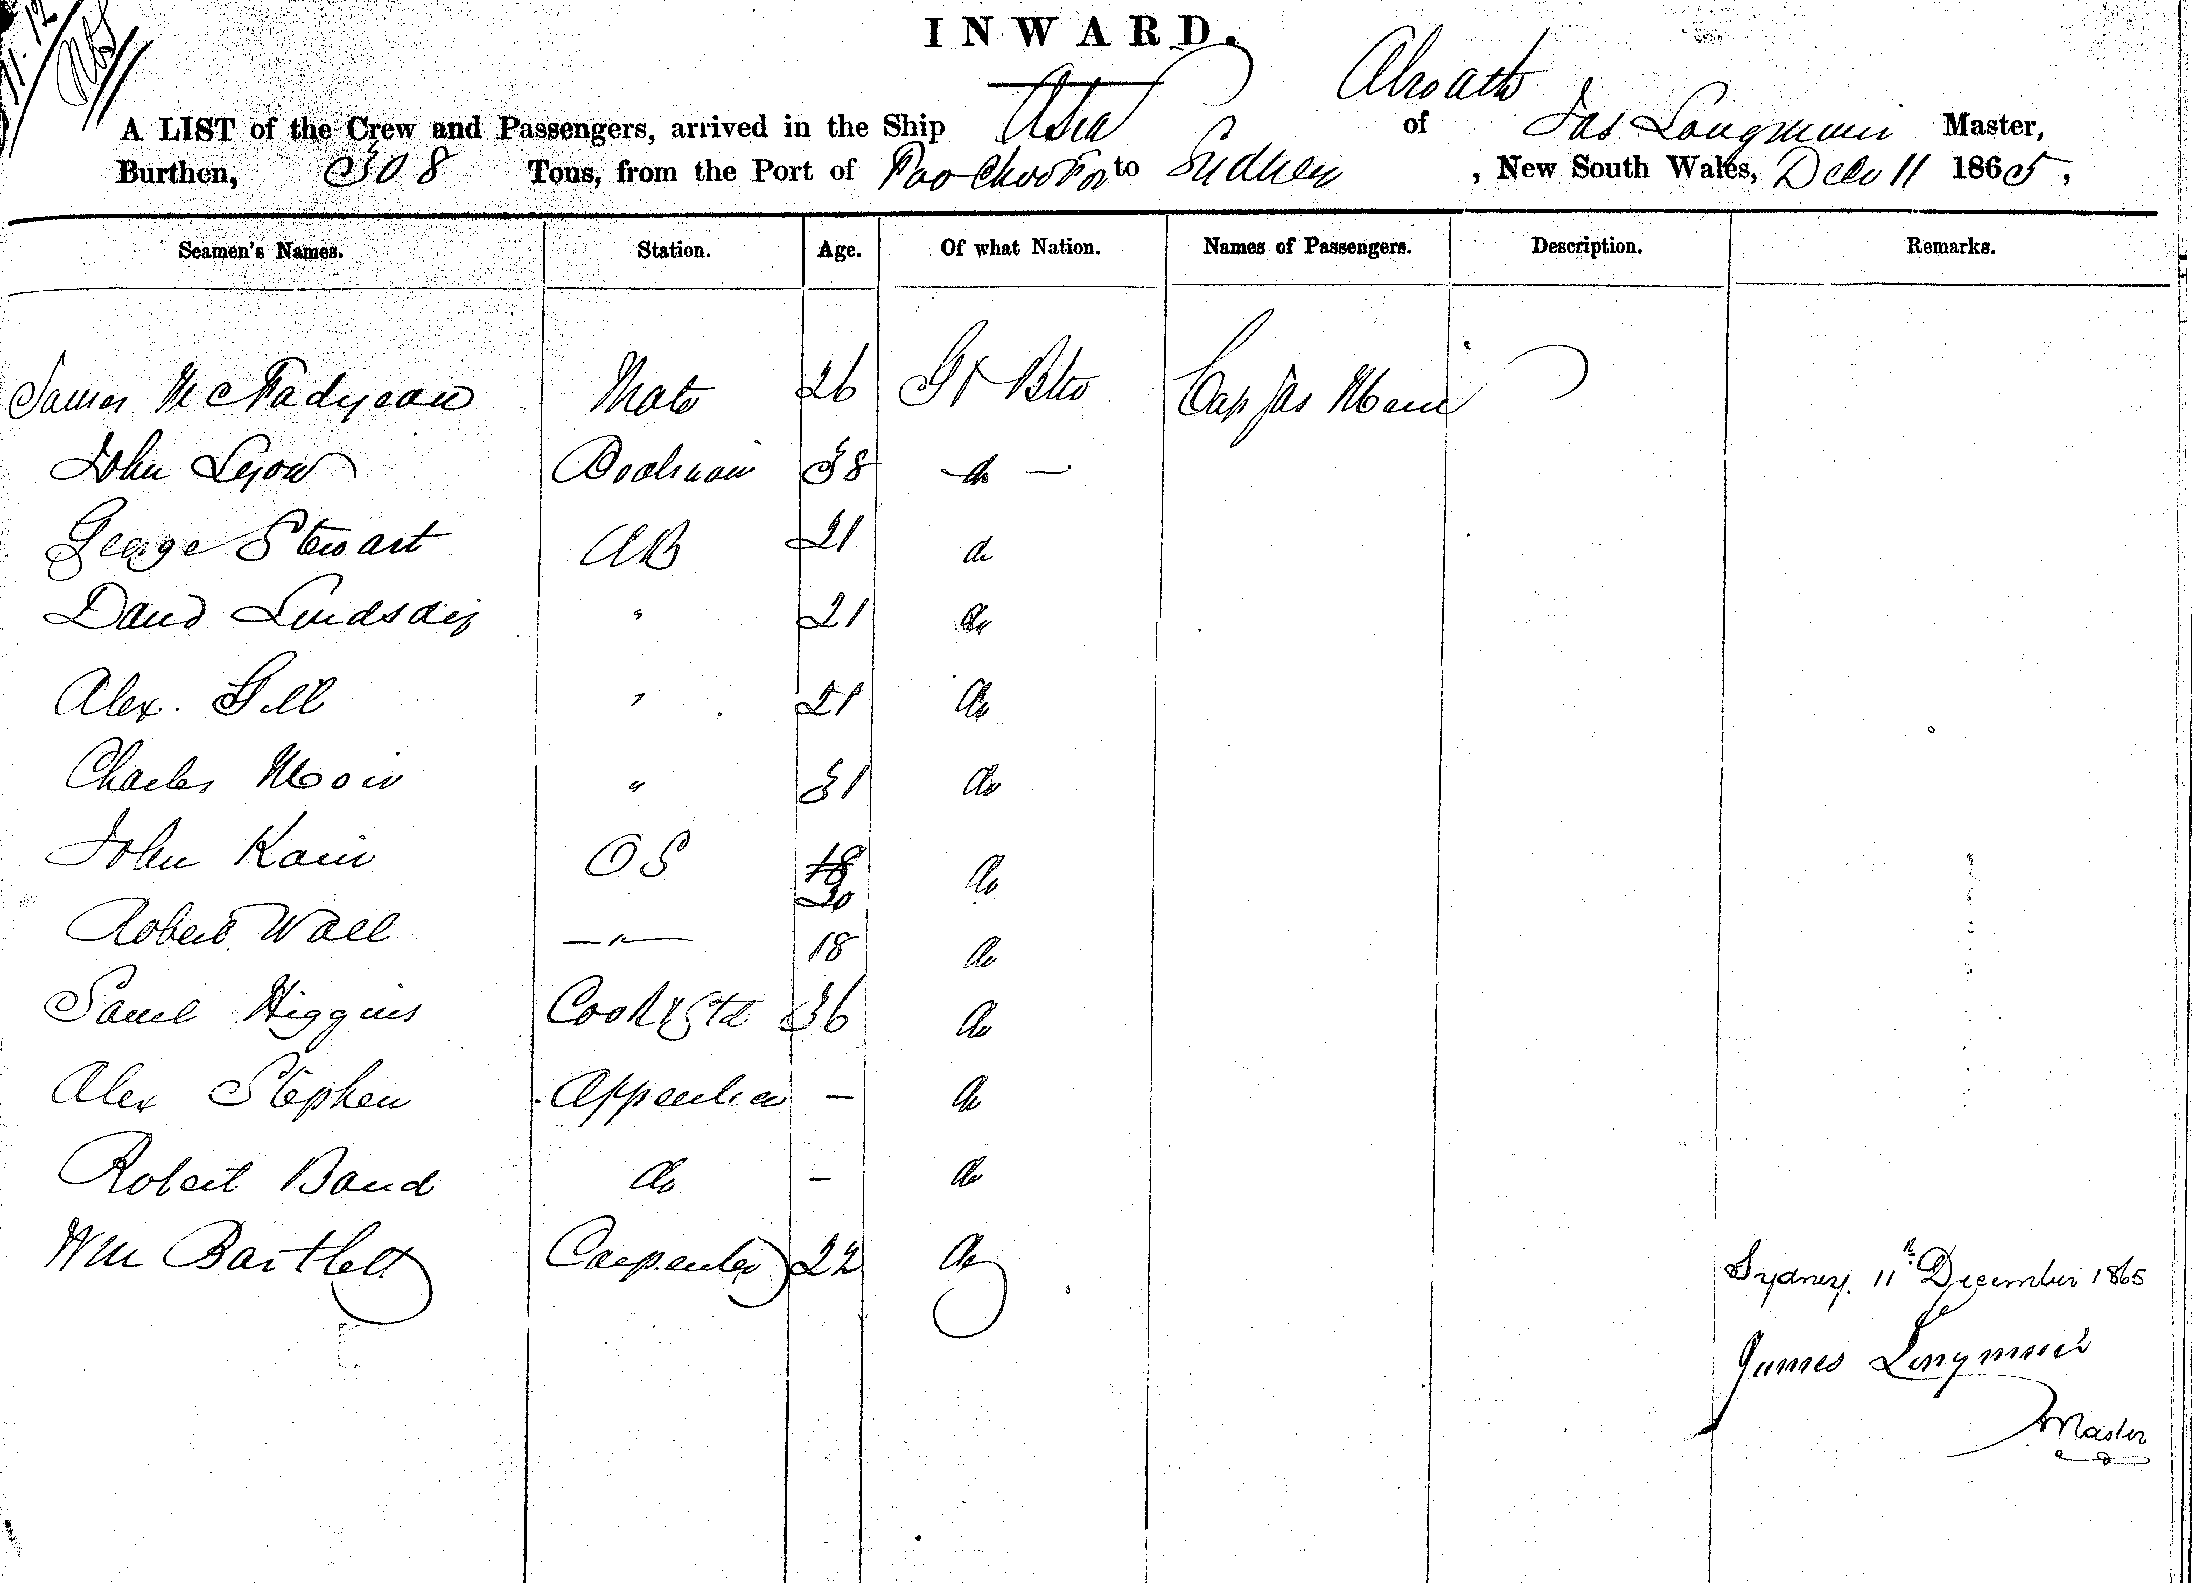 INWARD.
A LIST of the Crew and Passengers, arrived in the Ship Asia of Jas Longmuir Master,
Burthen, 308 Tons, from the Port of Foo Chow Foo to Sydney, New South Wales, Decr 11 1865,
Seamen's Names. Station. Age. Of what Nation. Names of Passengers. Description. Remarks.
James McFadyean Mate 26 Gt Btn Cap Jas
John Lyon Boatswain 38 do —
George Stewart AB 21 do
David Lindsay " 21 do
Alex. Gill " 21 do
Charles Moir " 31 do
John Kain OS 18 20 do
Robert Wall — " — 18 do
Saml Higgins Cook & Std 36 do
Alex Stephen Apprentice – do
Robert Band do – do
Wm Bartlett Carpenter 22 do
Sydney. 11th December 1865
James Longmuir
Master